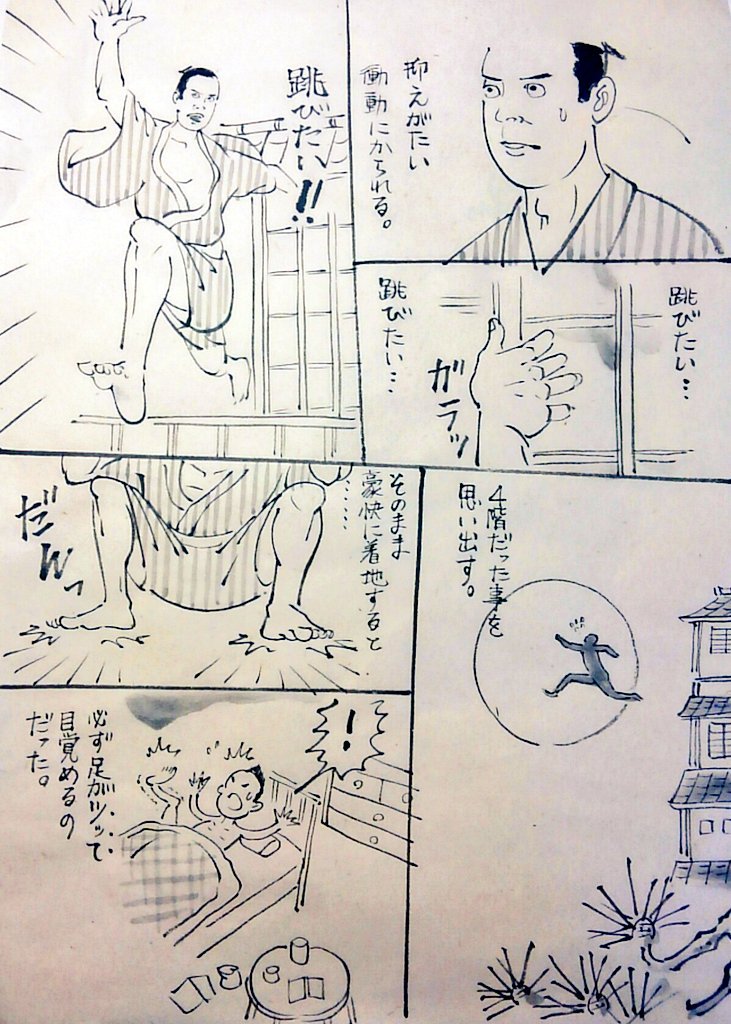 抑えがたい
衝動にかられる。
跳びたい…
ガラッ
跳びたい…
跳びたい!!
4階だった事を
思い出す。
そのまま
豪快に着地すると
……
だんっ
!
必ず足がツッて
目覚めるの
だった。